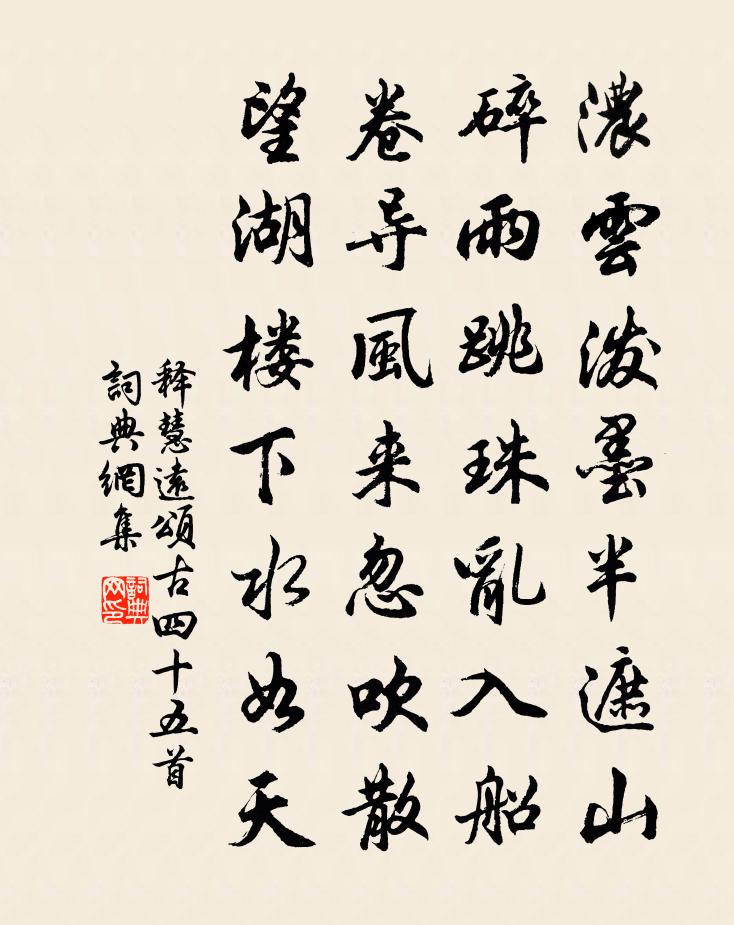 濃雲潑墨半遮山
碎雨跳珠亂入船
卷㝵風来忽吹散
望湖楼下水如天
释慧遠頌古四十五首
詞典網集
詞典网印